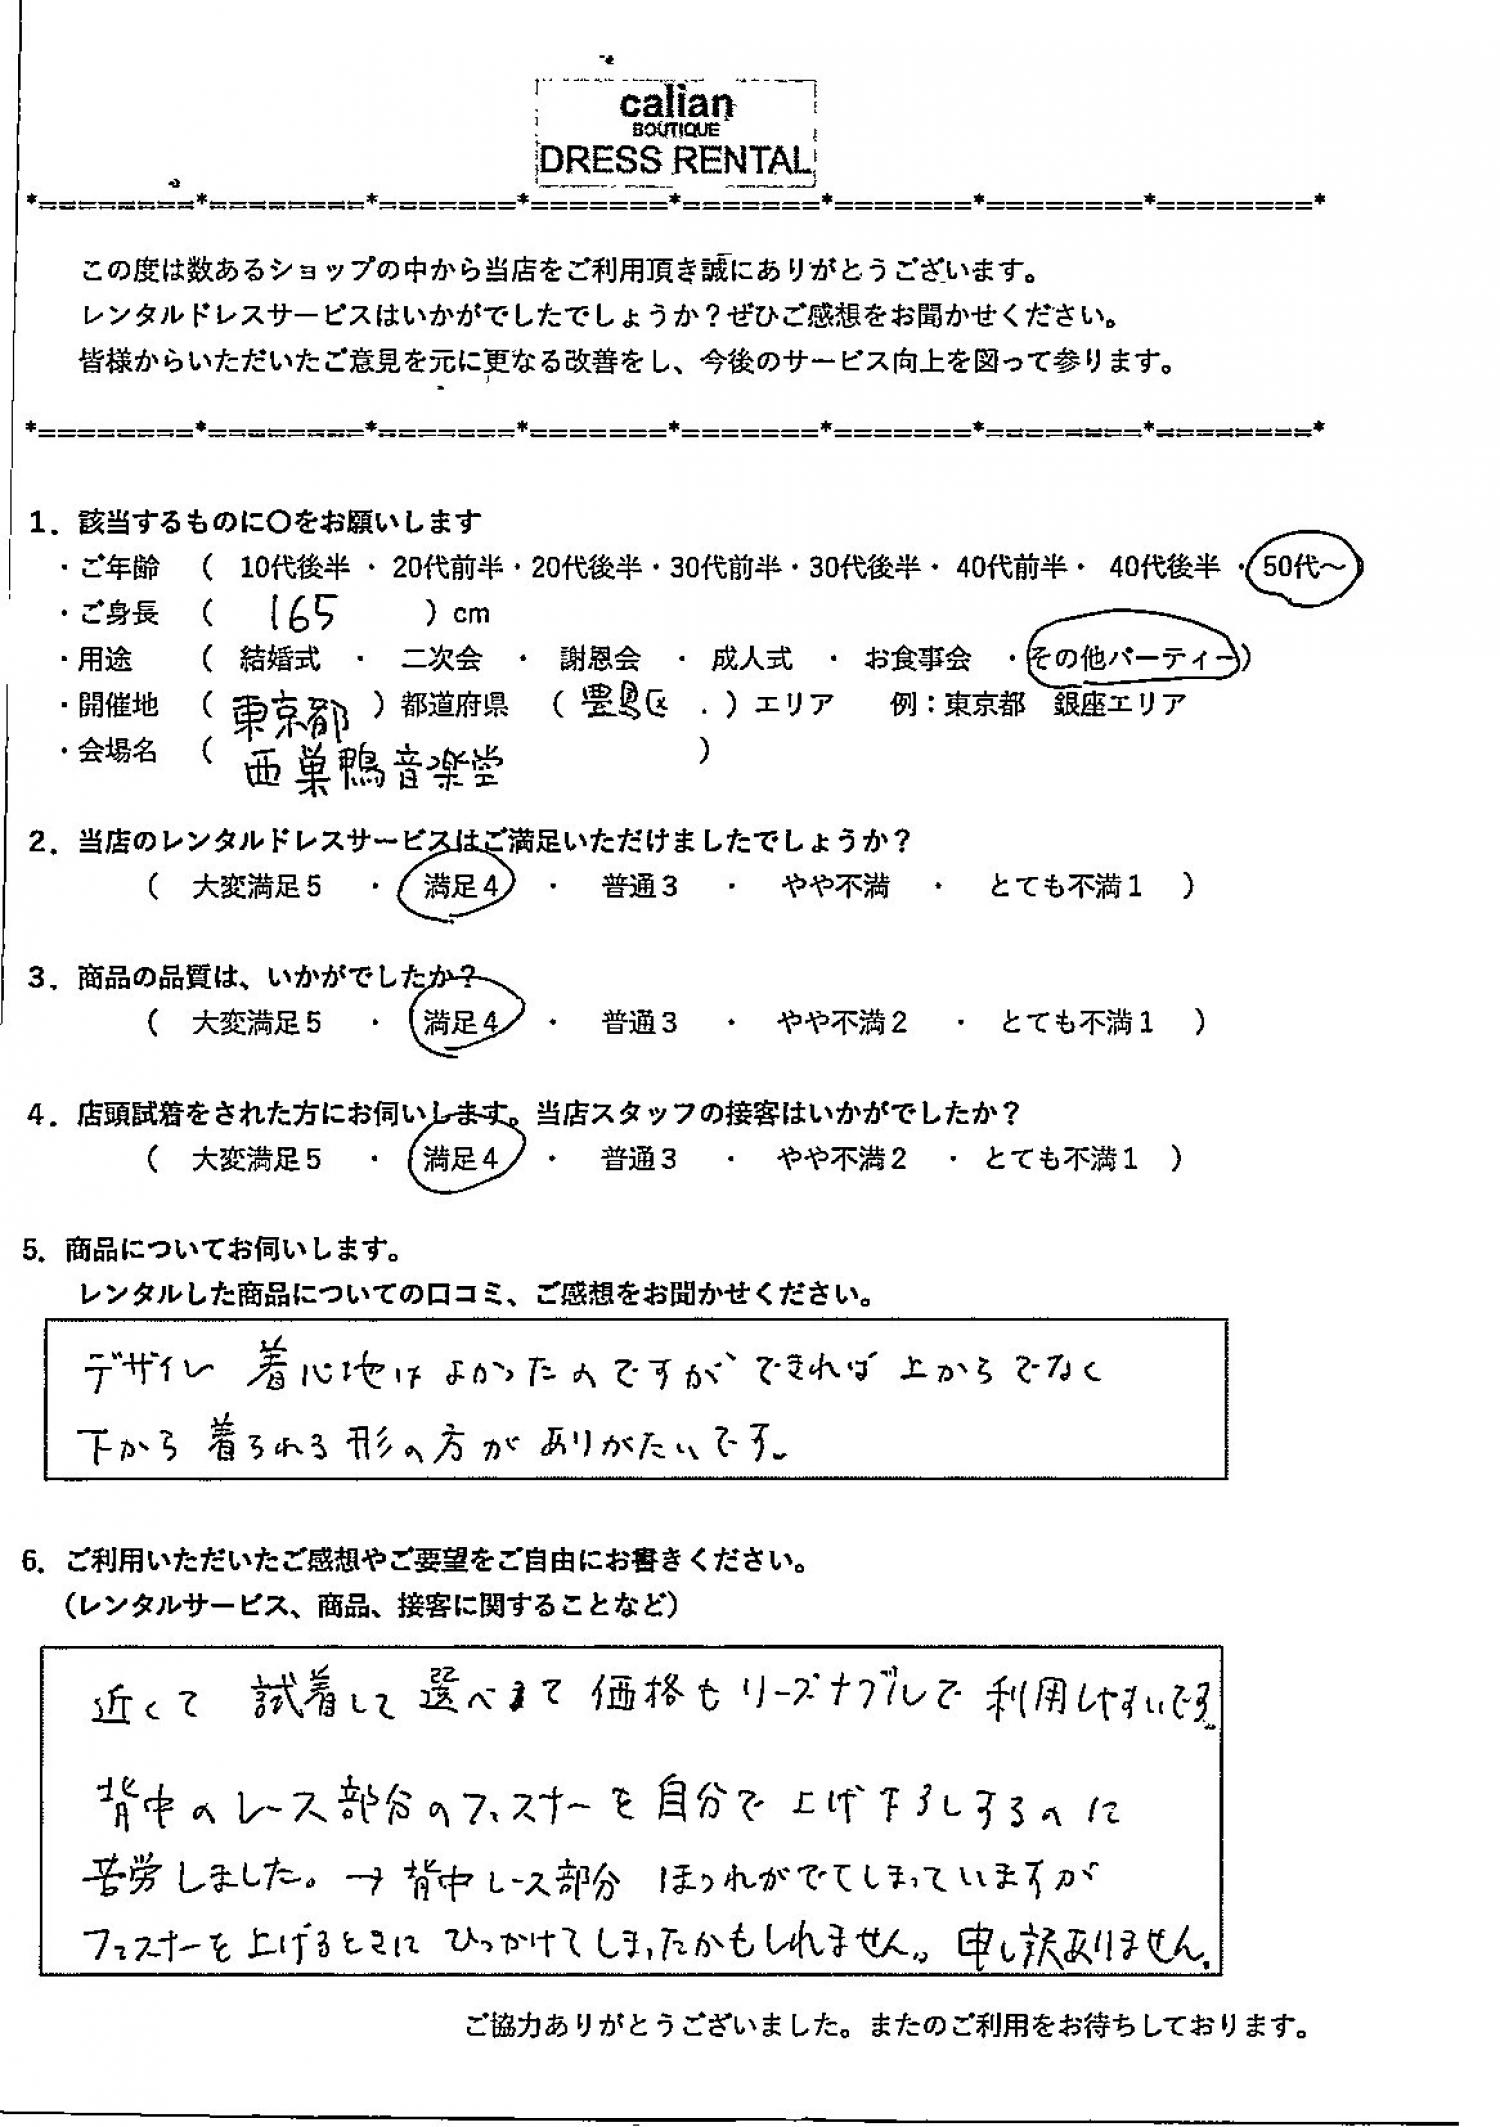 calian
BOUTIQUE
DRESS RENTAL
*========*========*=======*=======*=======*=======*========*========*
この度は数あるショップの中から当店をご利用頂き誠にありがとうございます。
レンタルドレスサービスはいかがでしたでしょうか？ぜひご感想をお聞かせください。
皆様からいただいたご意見を元に更なる改善をし、今後のサービス向上を図って参ります。
*========*========*=======*=======*=======*=======*========*========*
1．該当するものに〇をお願いします
・ご年齢　（　10代後半 ・ 20代前半・20代後半・30代前半・30代後半・ 40代前半・ 40代後半 ・50代～）
・ご身長　（　165　）cm
・用途　（　結婚式　・　二次会　・　謝恩会　・　成人式　・　お食事会　・その他パーティー）
・開催地　（　東京都　）都道府県　（　豊島区　）エリア　　例：東京都　銀座エリア
・会場名　（　西巣鴨音楽堂　）
2．当店のレンタルドレスサービスはご満足いただけましたでしょうか？
（　大変満足５　・　満足４　・　普通３　・　やや不満　・　とても不満１　）
3．商品の品質は、いかがでしたか？
（　大変満足５　・　満足４　・　普通３　・　やや不満２　・　とても不満１　）
4．店頭試着をされた方にお伺いします。当店スタッフの接客はいかがでしたか？
（　大変満足５　・　満足４　・　普通３　・　やや不満２　・　とても不満１　）
5．商品についてお伺いします。
レンタルした商品についての口コミ、ご感想をお聞かせください。
デザイン 着心地は よかったのですが できれば 上からでなく
下から 着られる 形の方が ありがたいです。
6．ご利用いただいたご感想やご要望をご自由にお書きください。
（レンタルサービス、商品、接客に関することなど）
近くて 試着して 選べて 価格も リーズナブルで 利用しやすいです。
背中のレース部分のファスナーを 自分で 上げ下ろしするのに
苦労しました。→ 背中レース部分 ほつれがでてしまっていますが
ファスナーを 上げるときに ひっかけてしまったかもしれません。申し訳ありません。
ご協力ありがとうございました。またのご利用をお待ちしております。